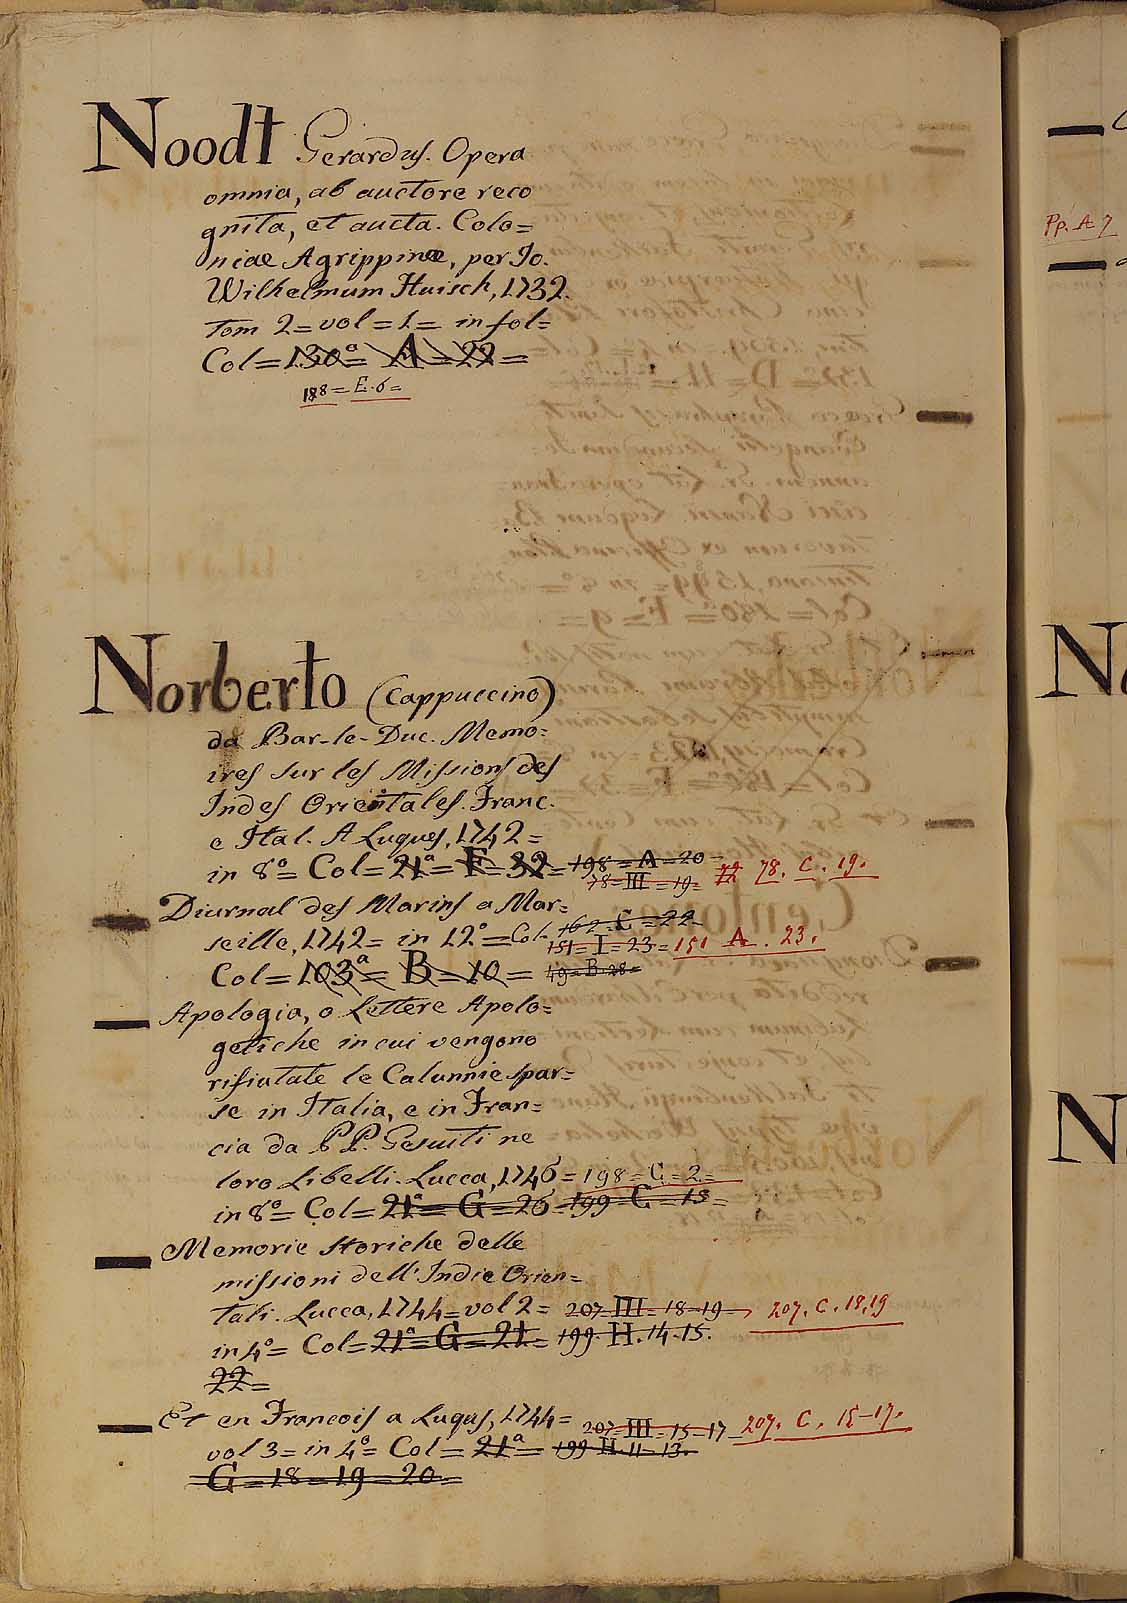 Noodt Gerardus. Opera
omnia, ab auctore reco
gnita, et aucta. Colo=
niae Agrippinae, per Jo.
Wilhelmum Huisch, 1732.
Tom 2= vol=1= in fol=
Col=130ª= A=22=
188=E.6=
Norberto (Cappuccino)
da Bar-le-Duc. Memo=
ires sur les Missions des
Indes Orientales. Franc.
e Ital. A Luques, 1742=
in 8º= Col=21ª=F=32=198=A=20=
78=III=19= 78. C. 19.
Diurnal des Marins a Mar=
seille, 1742= in 12º=Col. 162=C=22=
151=I=23=151 A. 23.
Col=103ª=B=10= 49=B.28=
Apologia, o Lettere Apolo=
getiche in cui vengono
rifiutate le Calunnie spar=
se in Italia, e in Fran=
cia da P.P. Gesuiti ne
loro Libelli. Lucca, 1746=198=C=2=
in 8º= Col=21ª=G=26=199=C=13=
Memorie storiche delle
missioni dell'Indie Orien=
tali. Lucca, 1744=vol 2= 207=III=18-19- 207. C. 18,19
in 4º= Col=21ª=G=21= 199 H.14.15.
22=
Et en Francois a Luques, 1744= 207=III=15-17- 207. C. 15-17.
vol 3= in 4º= Col=21ª= 199 H.11=13=
G=18=19=20=
Pp. A 7